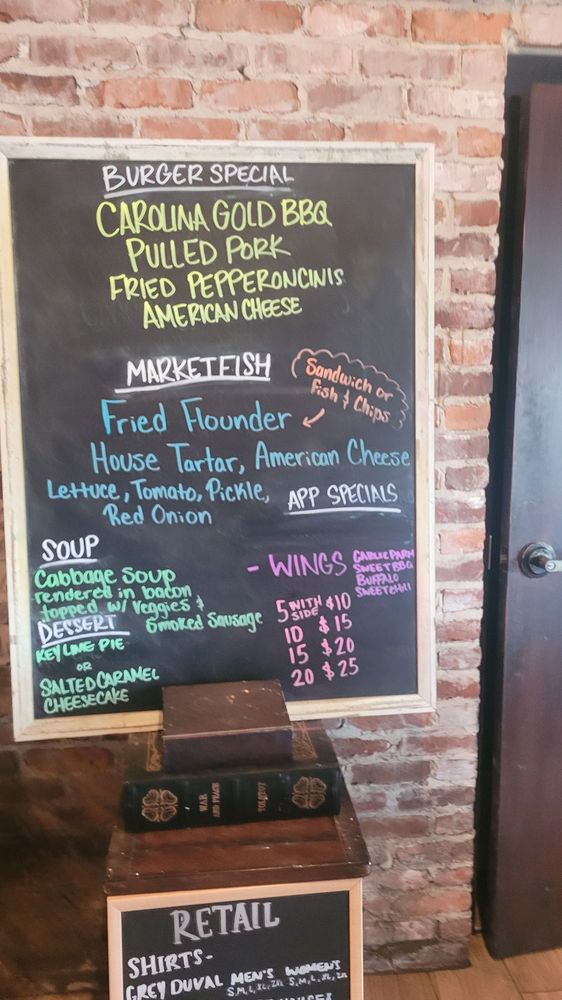 BURGER SPECIAL
CAROLINA GOLD BBQ
PULLED PORK
FRIED PEPPERONCINIS
AMERICAN CHEESE
MARKET FISH
Sandwich or
Fish & Chips
Fried Flounder
House Tartar, American Cheese
Lettuce, Tomato, Pickle,
Red Onion
APP SPECIALS
- WINGS
GARLIC PARM
SWEET BBQ
BUFFALO
SWEET CHILI
5 WITH SIDE $10
10 $15
15 $20
20 $25
SOUP
Cabbage Soup
rendered in bacon
topped w/ veggies &
Smoked Sausage
DESSERT
KEY LIME PIE
OR
SALTED CARAMEL
CHEESECAKE
WAR
AND PEACE
TOLSTOY
RETAIL
SHIRTS-
GREY DUVAL MEN'S WOMEN'S
S, M, L, XL, 2XL S, M, L, XL, 2XL